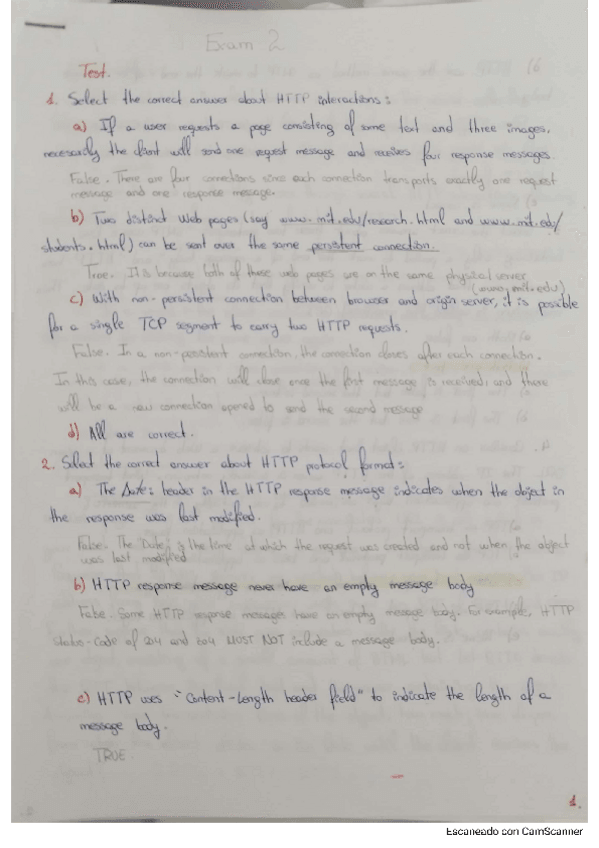 Exam 2
Test.
1. Select the correct answer about HTTP interactions:
a) If a user requests a page consisting of some text and three images,
necessarily the client will send one request message and receives four response messages.
False. There are four connections since each connection transports exactly one request
message and one response message.
b) Two distinct Web pages (say www.mit.edu/research.html and www.mit.edu/
students.html) can be sent over the same persistent connection.
True. It is because both of these web pages are on the same physical server
(www.mit.edu)
c) With non-persistent connection between browser and origin server, it is possible
for a single TCP segment to carry two HTTP requests.
False. In a non-persistent connection, the connection closes after each connection.
In this case, the connection will close once the first message is received, and there
will be a new connection opened to send the second message
d) All are correct.
2. Select the correct answer about HTTP protocol format:
a) The Date: header in the HTTP response message indicates when the object in
the response was last modified.
False. The Date: is the time at which the request was created and not when the object
was last modified
b) HTTP response message never have an empty message body
False. Some HTTP response messages have an empty message body. For example, HTTP
status-Code of 204 and 304 MUST NOT include a message body.
c) HTTP uses "Content-Length header field" to indicate the length of a
message body.
TRUE.
1.
Escaneado con CamScanner